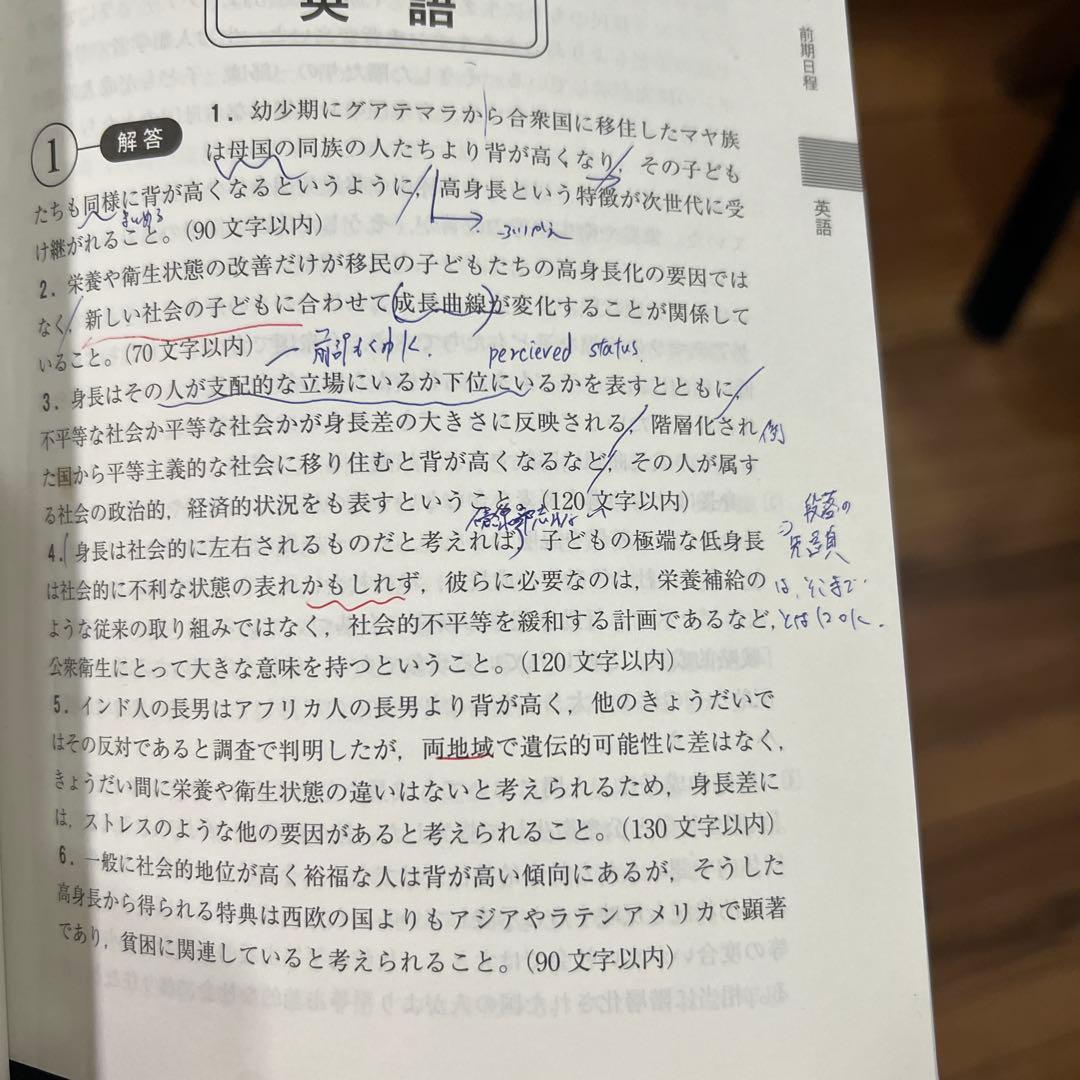 英語
前期日程
英語
1 解答 1．幼少期にグアテマラから合衆国に移住したマヤ族
は母国の同族の人たちより背が高くなり，その子ども
たちも同様に背が高くなるというように，高身長という特徴が次世代に受
まとめる
け継がれること。(90 文字以内)
2．栄養や衛生状態の改善だけが移民の子どもたちの高身長化の要因では
なく，新しい社会の子どもに合わせて成長曲線が変化することが関係して
いること。(70 文字以内)
percieved status.
3．身長はその人が支配的な立場にいるか下位にいるかを表すとともに，
不平等な社会か平等な社会かが身長差の大きさに反映される，階層化され
例
た国から平等主義的な社会に移り住むと背が高くなるなど，その人が属す
る社会の政治的，経済的状況をも表すということ。(120 文字以内)
段落の
4．身長は社会的に左右されるものだと考えれば，子どもの極端な低身長
は社会的に不利な状態の表れかもしれず，彼らに必要なのは，栄養補給の
は，そこまで
ような従来の取り組みではなく，社会的不平等を緩和する計画であるなど，
公衆衛生にとって大きな意味を持つということ。(120 文字以内)
5．インド人の長男はアフリカ人の長男より背が高く，他のきょうだいで
はその反対であると調査で判明したが，両地域で遺伝的可能性に差はなく，
きょうだい間に栄養や衛生状態の違いはないと考えられるため，身長差に
は，ストレスのような他の要因があると考えられること。(130 文字以内)
6．一般に社会的地位が高く裕福な人は背が高い傾向にあるが，そうした
高身長から得られる特典は西欧の国よりもアジアやラテンアメリカで顕著
であり，貧困に関連していると考えられること。(90 文字以内)